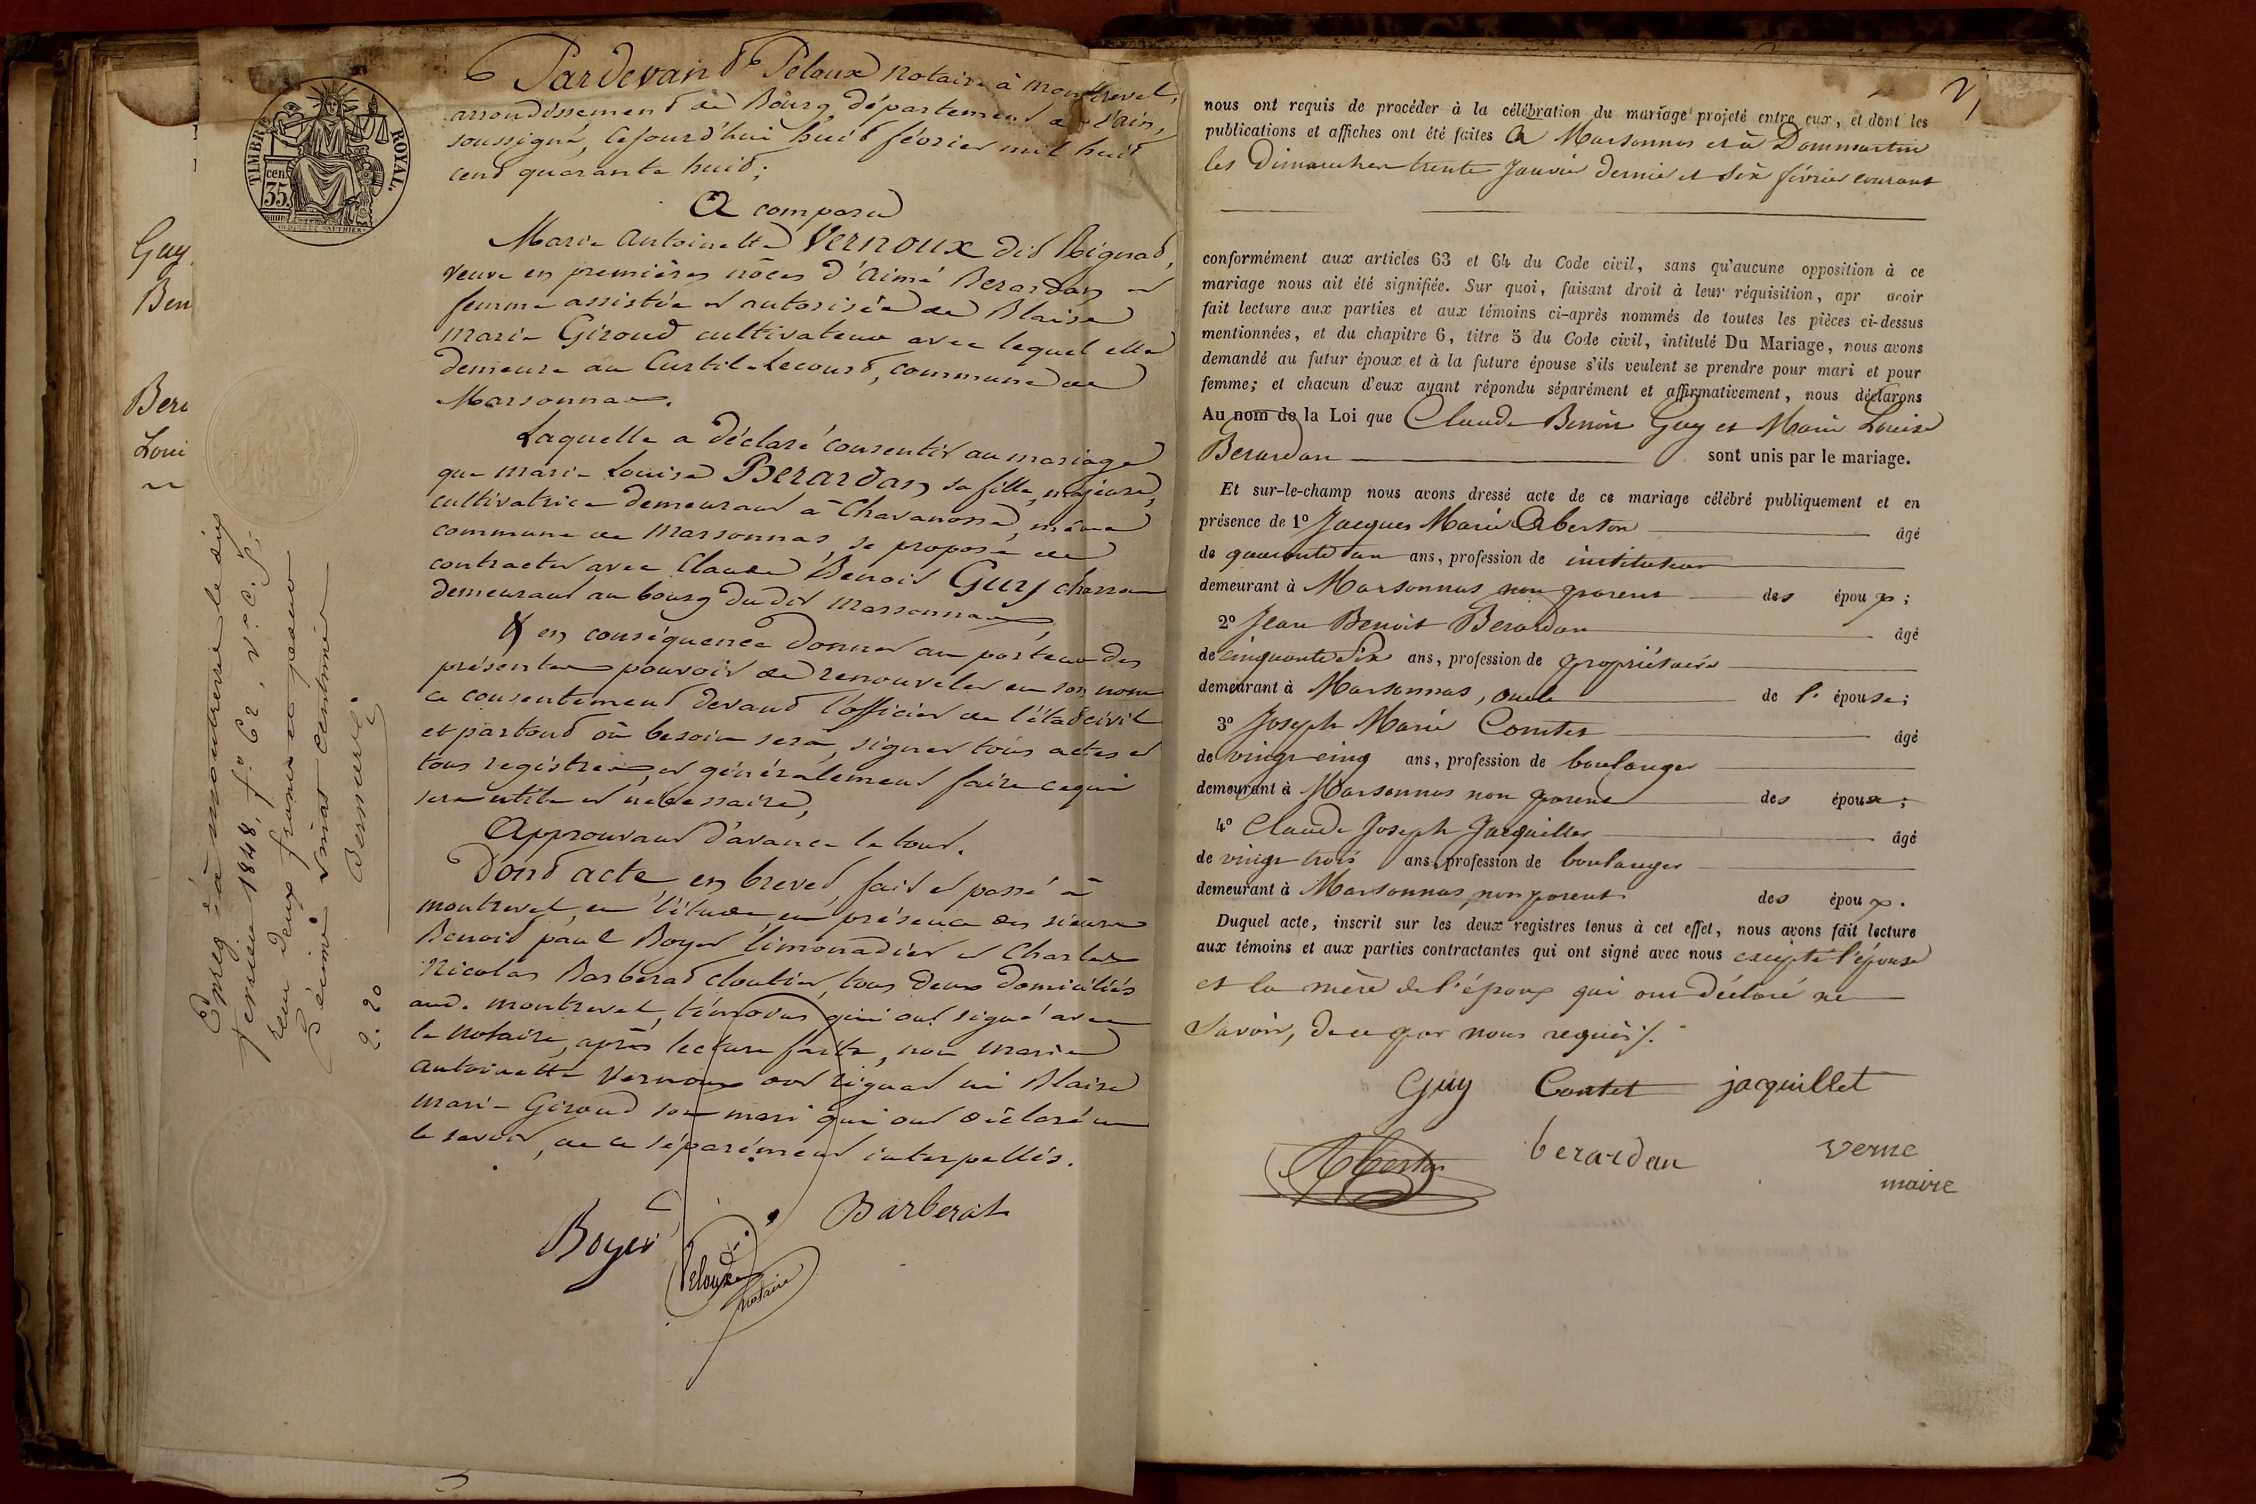 TIMBRE ROYAL.
cen
35
Pardevant Me Peloux notaire à Montrevel,
arrondissement de Bourg département de l'ain,
soussigné, cejourd'hui huit février mil huit
cent quarante huit;
A comparu
Marie Antoinette Vernoux dit Rignad,
veuve en premières nôces d'aimé Berardan et
femme assistée et autorisée de Blaise
Marie Giroud cultivateur avec lequel elle
demeure au Curtil-Lecourt, commune de
Marsonnas.
Laquelle a déclaré consentir au mariage
que marie Louise Berardan sa fille, majeure,
cultivatrice demeurant à Chavanosse, même
commune de Marsonnas, se propose de
contracter avec Claude Benoit Guy
demeurant au bourg du dit Marsonnas,
Et en conséquence donner au porteur des
présentes pouvoir de renouveler en son nom
ce consentement devant l'officier de l'état civil
et partout où besoin sera, signer tous actes et
tous registres, et généralement faire ce qui
sera utile et nécessaire,
Approuvant d'avance le tout.
Dont acte en brevet, fait et passé à
montrevel, en l'étude en présence des sieurs
Benoit paul Boyer limonadier et Charles
Nicolas Barberat cloutier, tous deux domiciliés
aud. montrevel, témoins qui ont signé avec
le notaire, après lecture faite, non marie
antoinette Vernoux dit Rignad ni Blaise
marie Giroud son mari qui ont déclaré ne
le savoir, de ce séparément interpellés.
Boyer
Barberat
Peloux
notaire
Enreg. à montrevel le dix
février 1848, f° 62, v° c. 5;
reçu deux francs
décime vingt centimes
2. 20
Guy
Ben
Bera
Loui
nous ont requis de procéder à la célébration du mariage projeté entre eux, et dont les
publications et affiches ont été faites A Marsonnas et à Dommartin
les Dimanches trente Janvier dernier et six février courant
conformément aux articles 63 et 64 du Code civil, sans qu'aucune opposition à ce
mariage nous ait été signifiée. Sur quoi, faisant droit à leur réquisition, apr avoir
fait lecture aux parties et aux témoins ci-après nommés de toutes les pièces ci-dessus
mentionnées, et du chapitre 6, titre 5 du Code civil, intitulé Du Mariage, nous avons
demandé au futur époux et à la future épouse s'ils veulent se prendre pour mari et pour
femme; et chacun d'eux ayant répondu séparément et affirmativement, nous déclarons
Au nom de la Loi que Claude Benoit Guy et Marie Louise
Berardan sont unis par le mariage.
Et sur-le-champ nous avons dressé acte de ce mariage célébré publiquement et en
présence de 1° Jacques Marie Alberton âgé
de quarante un ans, profession de instituteur
demeurant à Marsonnas non parent des époux;
2° Jean Benoit Berardan âgé
de cinquante six ans, profession de propriétaire
demeurant à Marsonnas, oncle de l'épouse;
3° Joseph Marie Contet âgé
de vingt cinq ans, profession de boulanger
demeurant à Marsonnas non parent des époux;
4° Claude Joseph Jacquillet âgé
de vingt trois ans, profession de boulanger
demeurant à Marsonnas, non parent des époux.
Duquel acte, inscrit sur les deux registres tenus à cet effet, nous avons fait lecture
aux témoins et aux parties contractantes qui ont signé avec nous excepté l'épouse
et la mère de l'époux qui ont déclaré ne
savoir, de ce par nous requis/.
Guy Contet jacquillet
berardan verne
maire